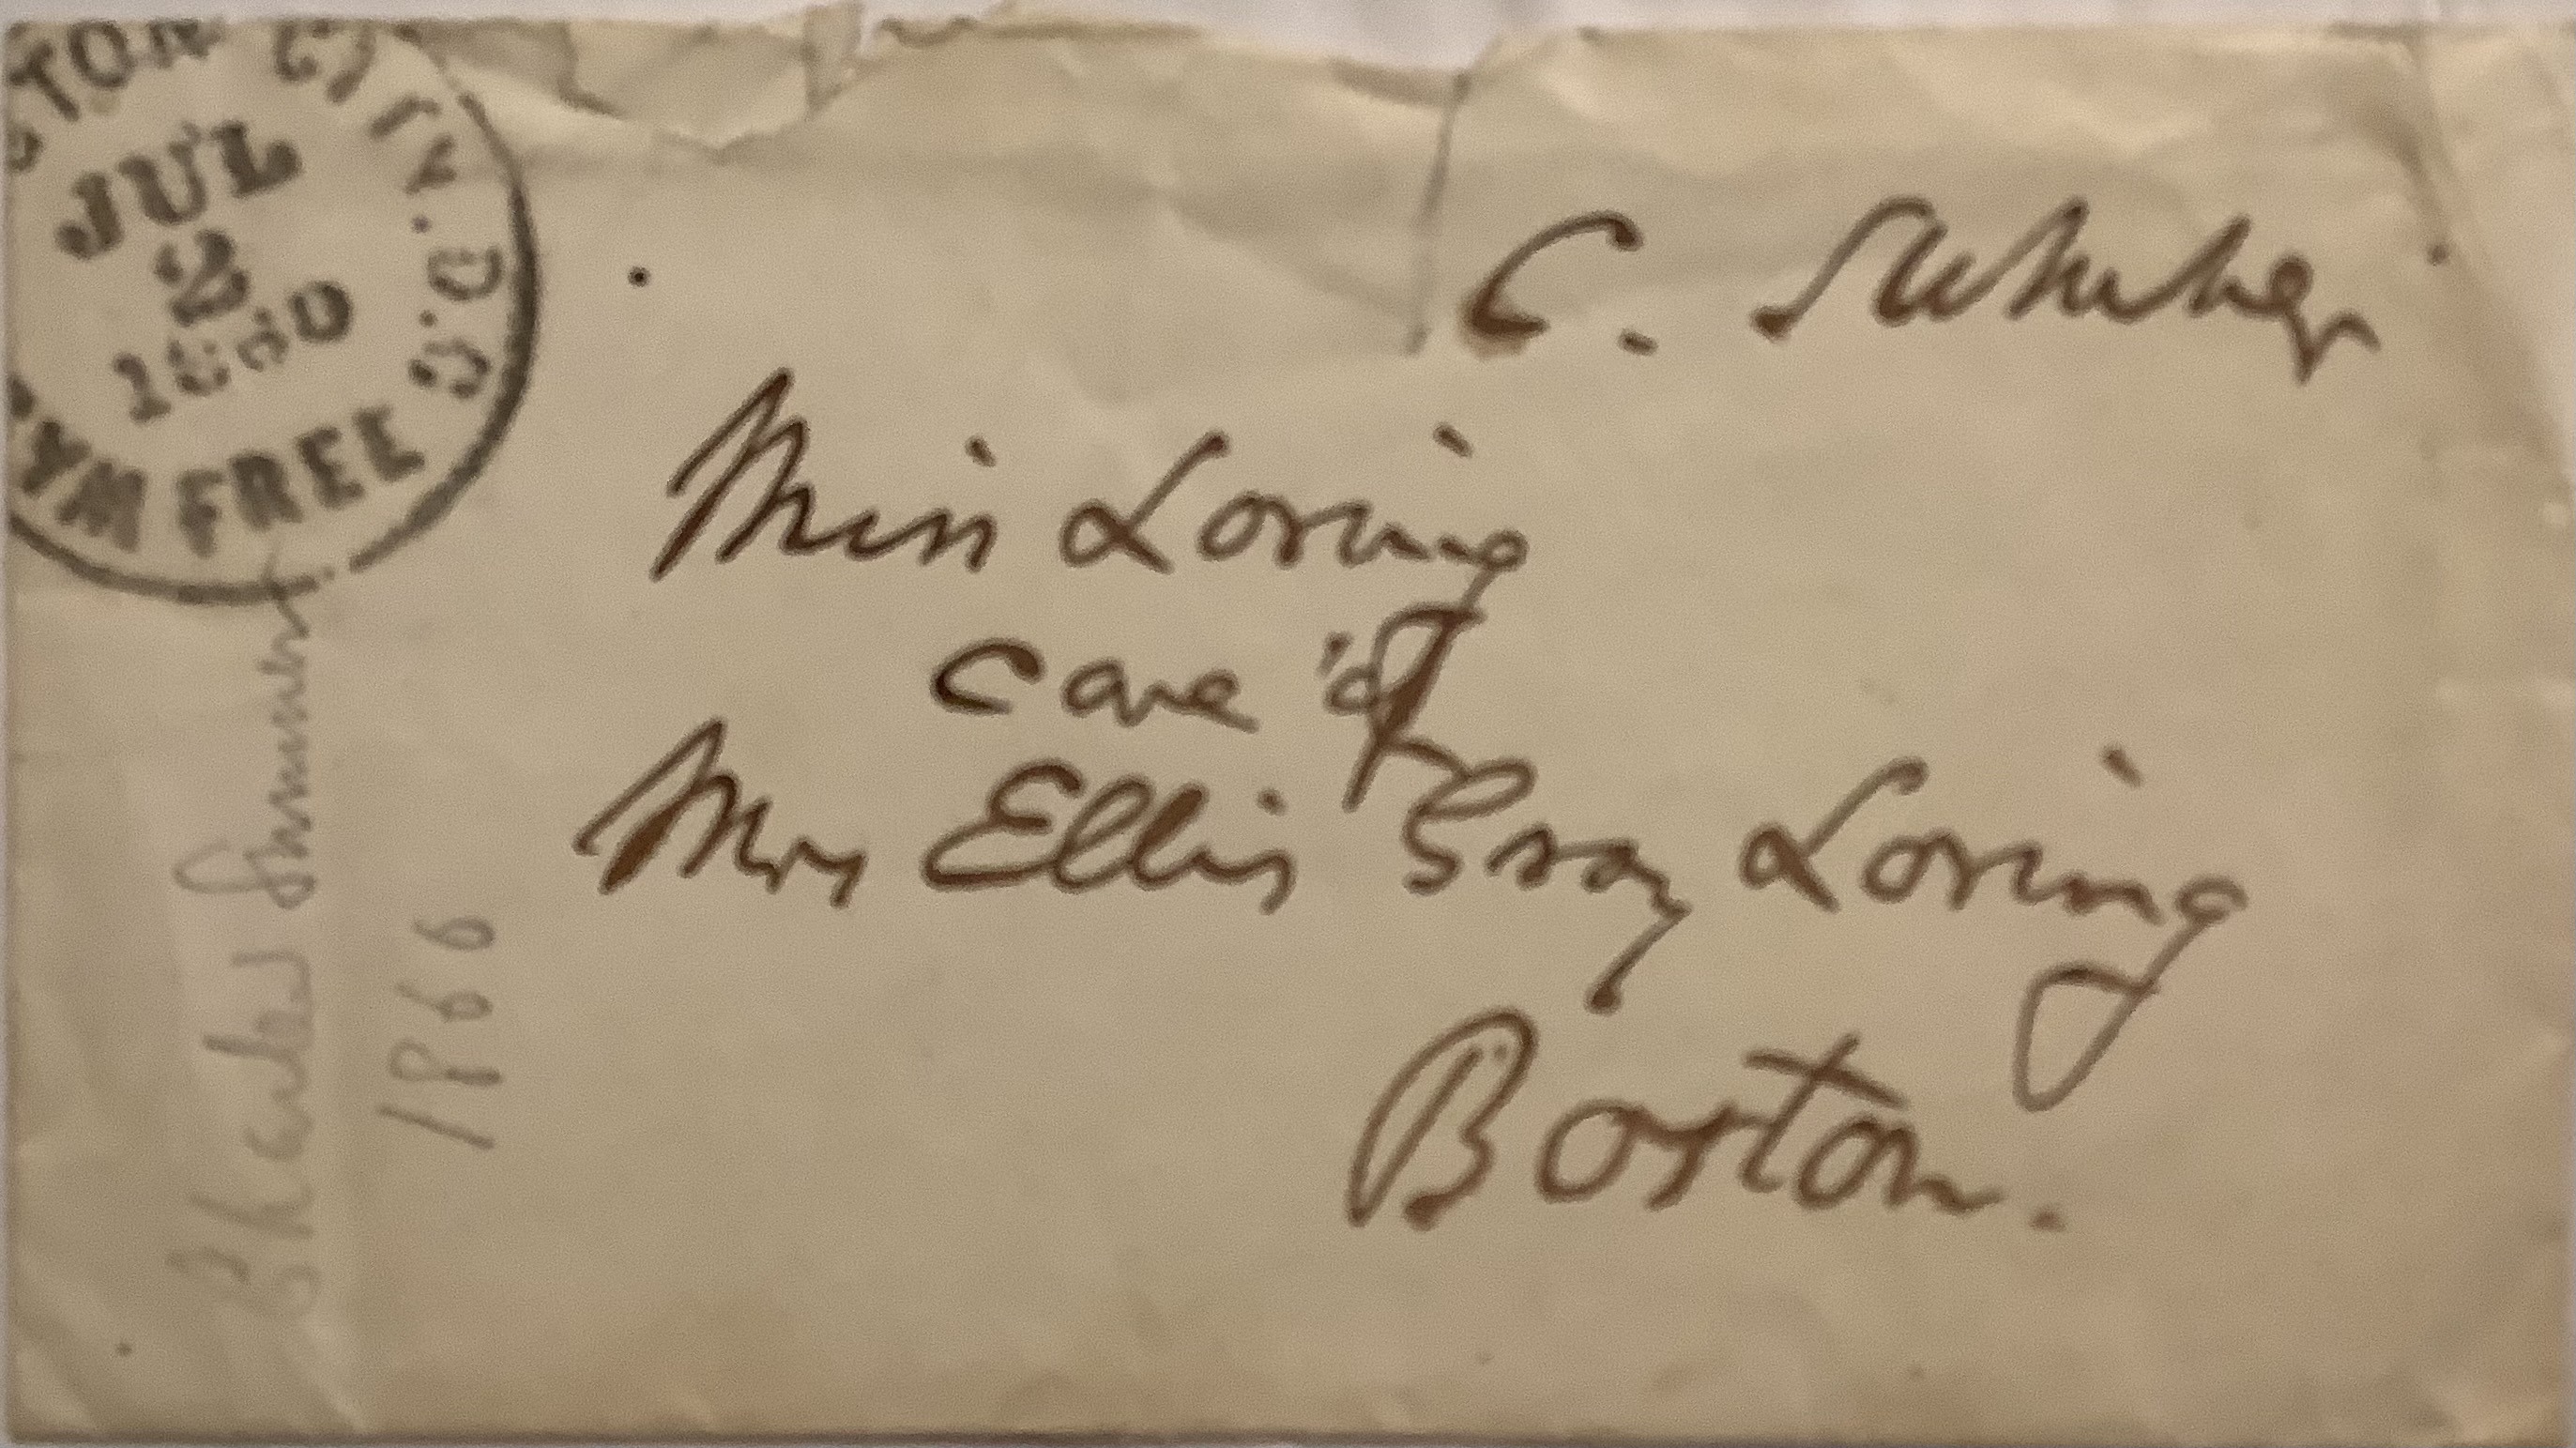 TON CITY. D.C.
JUL
2
1860
YM FREE
C. Sumner
Miss Loring
care of
Mrs Ellis Gray Loring
Boston.
Charles Sumner
1866